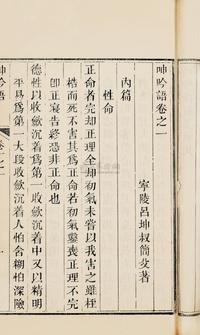 呻吟語卷之一
寧陵呂坤叔簡父著
內篇
性命
正命者完却正理全却初氣未嘗以我害之雖桎
梏而死不害其爲正命若初氣鑿喪正理不完
卽正寢告終恐非正命也
德性以收斂沉着爲第一收斂沉着中又以精明
平易爲第一大段收斂沉着人怕含糊怕深險
呻吟語
卷之一